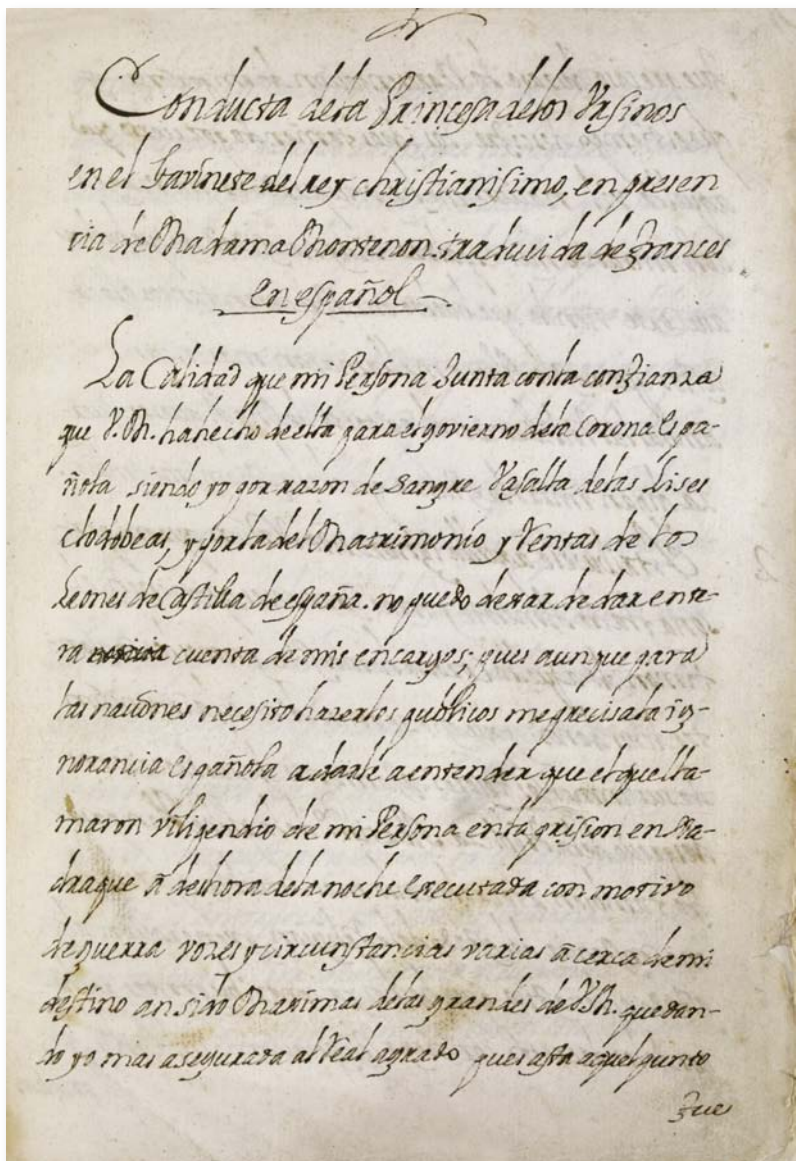 Conducta dela Princesa delos Vrsinos
en el Gavinete del rey christianisimo, en presen
cia de Madama Montenon. traducida de frances
en español
La Calidad que mi Persona Junta conla confianza
que V.M. ha hecho de ella para el govierno dela Corona Espa-
ñola siendo yo por razon de Sangre Vasalla delas Lises
clodobeas, y por la del Matrimonio y Rentas de los
Leones de Castilla de españa. no puedo dexar de dar ente-
ra noticia cuenta de mis encargos; pues aunque para
las naciones necesito hazerlos publicos me precisa la ig-
norancia Española a darle a entender que el que lla-
maron vilipendio de mi Persona en la prision en Xa-
draque â deshora dela noche executada con motivo
de guerra vozes y circunstancias varias â cerca de mi
destino an sido Maximas delas grandes de V.M. quedan-
do yo mas asegurada al Real agrado pues asta aquel punto
fue